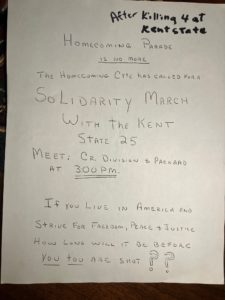 After Killing 4 at
Kent State
Homecoming Parade
is no more
The Homecoming Cte has called for a
Solidarity March
With the Kent
State 25
Meet: Cr. Division & Packard
at 3:00 PM.
If you Live in America and
Strive for Freedom, Peace & Justice
How long will it be before
you too are shot ??